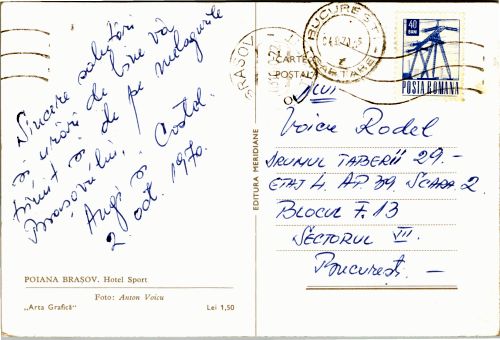 Sincere salutări
și urări de bine vă
trimit și de pe meleagurile
Brașovului.
Angi și Costel.
2 oct. 1970.
POIANA BRAȘOV. Hotel Sport
Foto: Anton Voicu
„Arta Grafică"
Lei 1,50
EDITURA MERIDIANE
BRAȘOV
CARTE
POSTALĂ
BUCUREȘTI
CARTARE
40
BANI
POSTA ROMANA
Lui
Voicu Rodel
DRUMUL TABERII 29.-
ETAJ 4. AP 39. SCARA 2.
BLOCUL F. 13
SECTORUL VII.
București. -